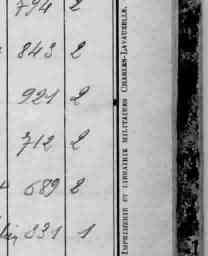 794 2
843 2
921 2
712 2
689 2
331 1
IMPRIMERIE ET LIBRAIRIE MILITAIRES CHARLES-LAVAUZELLE.